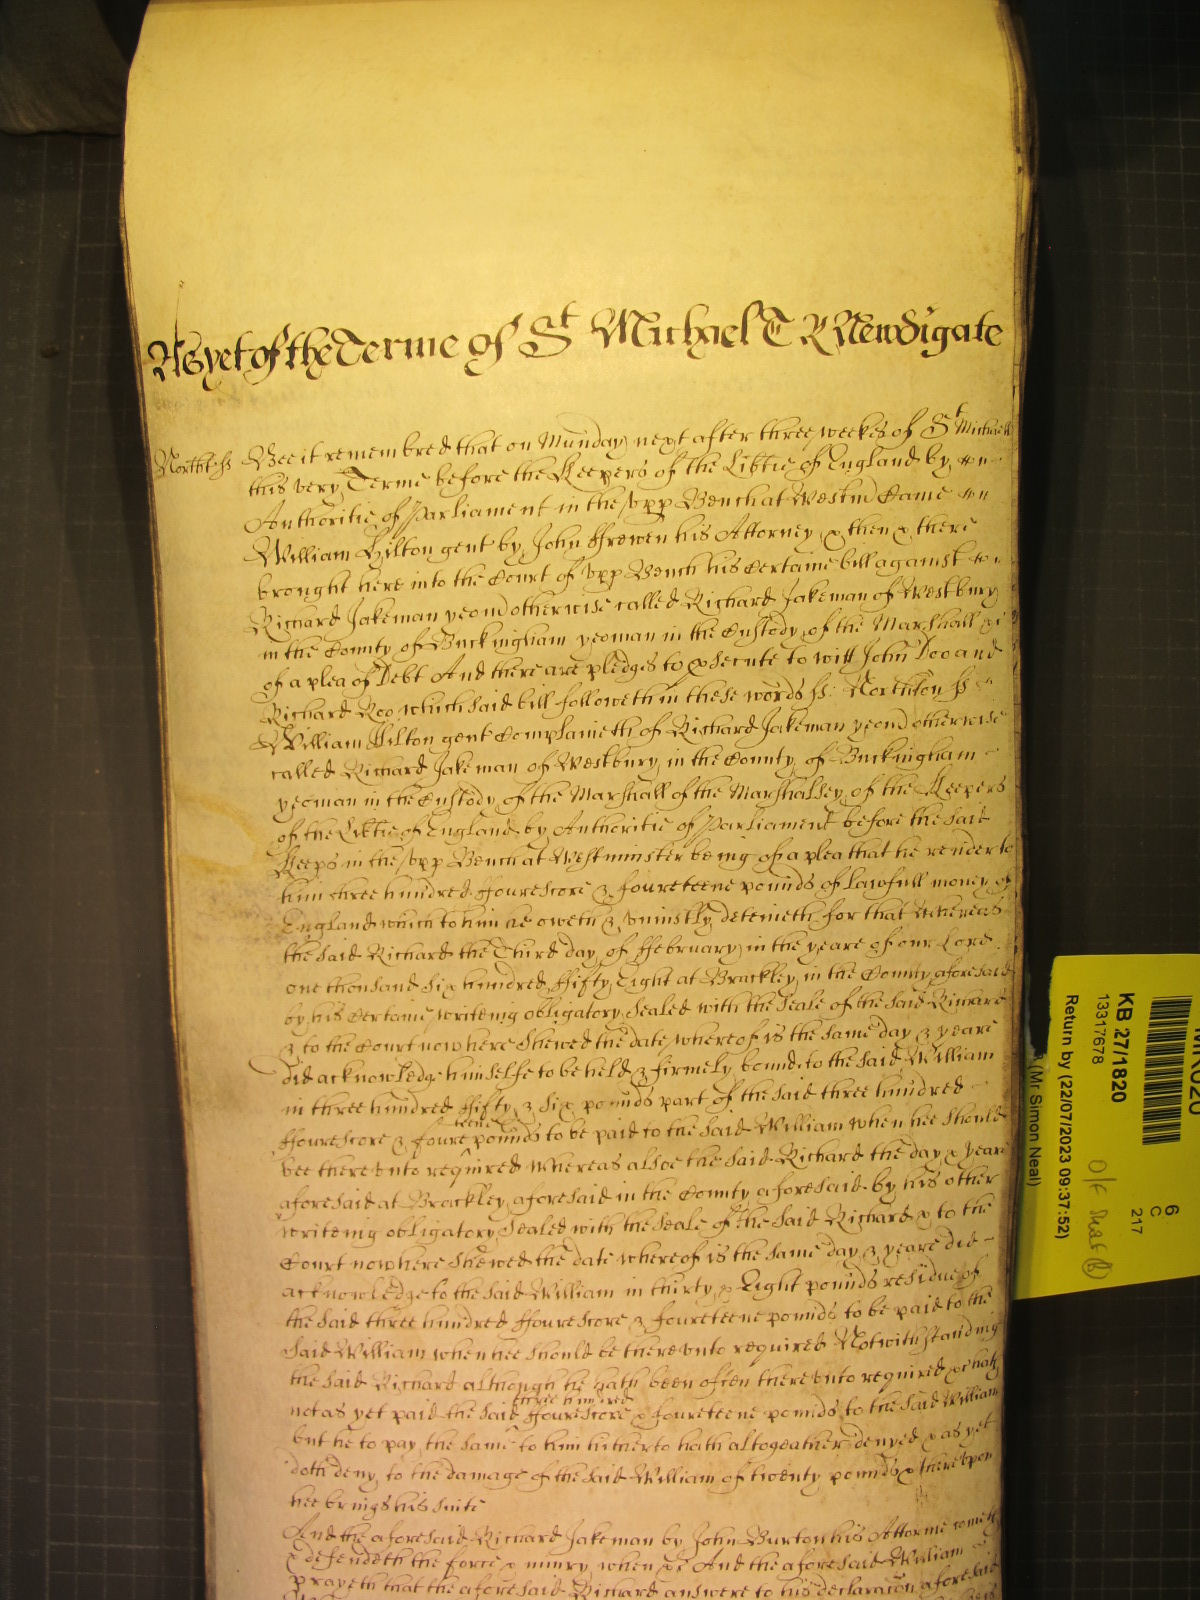 As yet of the Terme of St Michael T R Newdigate
Northt ss Bee it remembred that on Munday next after three weekes of St Michaell
this very Terme before the Keepers of the Libtie of England by
Authoritie of Parliament in the upp Bench at Westm Came
William Hilton gent by John ffrewen his Attorney & then & there
brought here into the Court of upp Bench his Certaine bill against
Richard Jakeman yeom otherwise called Richard Jakeman of Westbury
in the County of Buckingham yeoman in the Custody of the Marshall &c
of a plea of Debt And there are pledges to psecute to witt John Doo and
Richard Roo which said bill followeth in these words ss: Northton ss
William Hilton gent Complaineth of Richard Jakeman yeom otherwise
called Richard Jakeman of Westbury in the County of Buckingham
yeoman in the Custody of the Marshall of the Marshalsey of the Keepers
of the Libtie of England by Authoritie of Parliament before the said
Keeps in the upp Bench at Westminster being of a plea that he render to
him three hundred ffourescore & fourteene pounds of lawfull money of
England which to him he oweth & uniustly deteineth for that Whereas
the said Richard the Third day of ffebruary in the yeare of our Lord
one thousand six hundred ffifty Eight at Brackley in the County aforesaid
by his Certaine writeing obligatory Sealed with the Seale of the said Richard
& to the Court now here shewed the date whereof is the same day & yeare
did acknowledge himselfe to be held & firmely bound to the said William
in three hundred ffifty & six pounds part of the said three hundred
teene
ffourescore & foure pounds to be paid to the said William when hee should
bee thereunto required Whereas alsoe the said Richard the day & yeare
aforesaid at Brackley aforesaid in the County aforesaid by his other
writeing obligatory Sealed with the Seale of the said Richard & to the
Court now here shewed the date whereof is the same day & yeare did
acknowledge to the said William in thirty & Eight pounds residue of
the said three hundred ffourescore & foureteene pounds to be paid to the
said William when hee should be thereunto required Notwithstanding
the said Richard although he hath been often thereunto required &c hath
three hundred
not as yet paid the said ffourescore & foureteene pounds to the said William
but he to pay the same to him hitherto hath altogeather denyed & as yet
doth deny to the damage of the said William of twenty pounds & thereupon
hee brings his suite
And the aforesaid Richard Jakeman by John Burton his Attorne cometh
& defendeth the force & iniury when &c And the aforesaid William
prayeth that the aforesaid Richard answere to his declaracon aforesaid
KB 27/1820
13317678
Return by (22/07/2023 09:37:52)
(Mr Simon Neal)
6
C
217